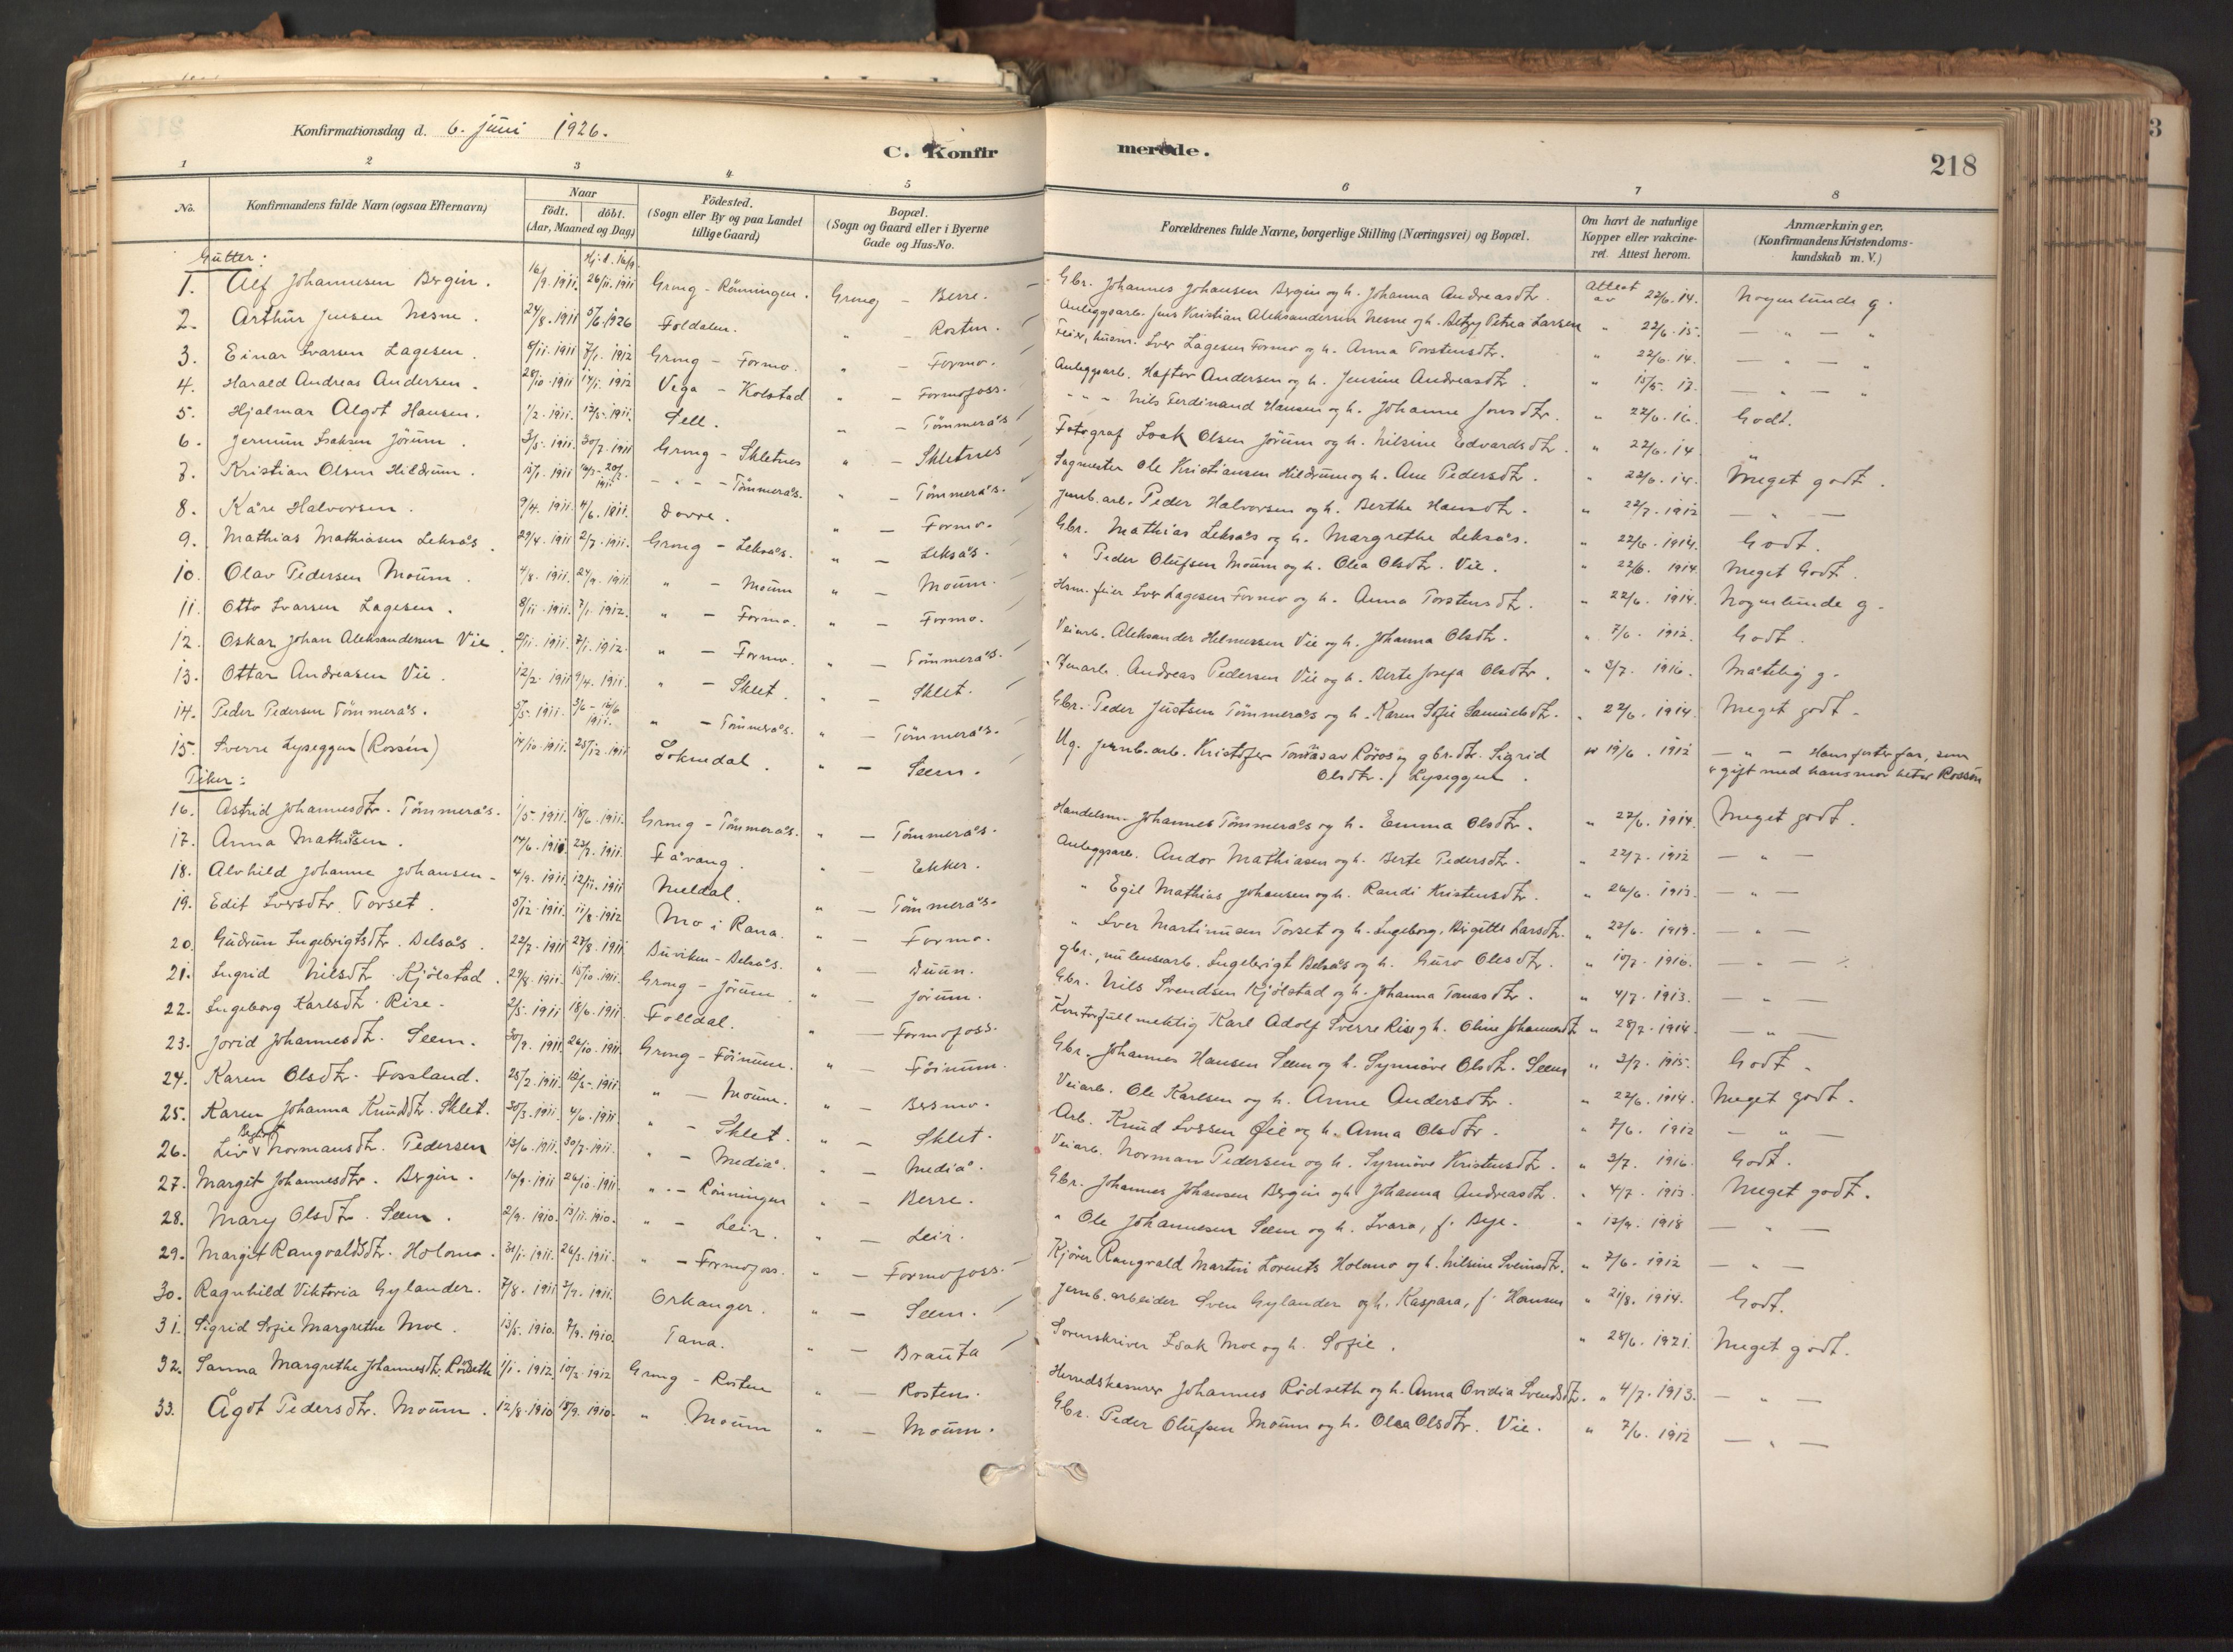 Konfirmationsdag d. 6. juni 1926.
C. Konfirmerede.
218
1 2 3 4 5 6 7 8
No.
Konfirmandens fulde Navn (ogsaa Efternavn)
Naar
födt. döbt.
(Aar, Maaned og Dag)
Födested.
(Sogn eller By og paa Landet
tillige Gaard)
Bopæl.
(Sogn og Gaard eller i Byerne
Gade og Hus-No.
Forældrenes fulde Navne, borgerlige Stilling (Næringsvei) og Bopæl.
Om havt de naturlige
Kopper eller vakcine-
ret. Attest herom.
Anmærkninger.
(Konfirmandens Kristendoms-
kundskab m. V.)
Gutter:
Hj. d. 16/9.
1. Alf Johannesen Bergin. 16/9. 1911. 26/11. 1911 Grong - Rönningen. Grong - Berre. Gbr. Johannes Johansen Bergin og h. Johanna Andreasdtr. Attest av 22/6. 14. Nogenlunde g.
2. Arthur Jensen Nesne. 24/8. 1911 5/6 1926 Foldalen. " - Rosten. Anleggsarb. Jens Kristian Aleksandersen Nesne og h. Betzy Petrea Larsen " 22/6. 15. — " — "
3. Einar Ivarsen Lagesen. 8/11. 1911 7/1. 1912 Grong - Formo. " - Formo. Feier, husm. Iver Lagesen Formo og h. Anna Torstensdtr. " 22/6. 14. — " — "
4. Harald Andreas Andersen. 28/10. 1911 14/1. 1912 Vega - Kolstad " - Formofoss. Anleggsarb. Haftor Andersen og h. Jensine Andreasdtr. " 15/5. 12. — " — "
5. Hjalmar Algot Hansen. 1/2. 1911. 12/3. 1911. Sell. " - Tömmerås - " - Nils Ferdinand Hansen og h. Johanne Jonsdtr. " 22/6. 16. Godt.
6. Jermun Isaksen Jörum. 3/5. 1911. 30/7. 1911 Grong - Skletnes " - Skletnes Fotograf Isak Olsen Jörum og h. Nilsine Edvardsdtr. " 22/6. 14 "
7. Kristian Olsen Hildrum. 15/7. 1911 — " - Tömmerås. " - Tömmerås. Sagmester Ole Kristiansen Hildrum og h. Ane Pedersdtr. " 22/6. 14. Meget godt.
8. Kåre Halvorsen. 9/4. 1911. 4/6. 1911. Dovre. " - Formo. Jernb. arb. Peder Halvorsen og h. Berthe Hansdtr. " 22/7. 1912 — " —
9. Mathias Mathiasen Leksås. 29/4. 1911 2/7. 1911. Grong - Leksås. " - Leksås. Gbr. Mathias Leksås og h. Margrethe Leksås. " 22/6. 1914. Godt.
10. Olav Pedersen Moum. 4/8. 1911. 24/9. 1911. " - Moum " - Moum. " Peder Olufsen Moum og h. Olea Olsdtr. Vie. " 22/6. 1914 Meget Godt.
11. Otto Ivarsen Lagesen. 8/11. 1911. 7/1. 1912. " - Formo. " - Formo. Hsm. feier Iver Lagesen Formo og h. Anna Torstensdtr. " 22/6. 1914. Nogenlunde g.
12. Oskar Johan Aleksandersen Vie. 1911. 7/1. 1912. " - Formo. " - Tömmerås. Veiarb. Aleksander Helmersen Vie og h. Johanna Olsdtr. " 7/6. 1912. Godt.
13. Ottar Andreasen Vie. 12/2. 1911 9/4. 1911. " - Sklet. " - Sklet. Andreas Pedersen Vie og h. Berte Josefa Olsdtr. " 3/7. 1916. Måtelig g.
14. Peder Pedersen Tömmerås. 5/5. 1911. 5/6 - 16/6 1911. " - Tömmerås. " - Tömmerås. Gbr. Peder Justsen Tömmerås og h. Karen Sofie Samuelsdtr. " 22/6. 1914. Meget godt.
15. Sverre Lyseggen (Rossén) 14/10. 1911. 25/12. 1911 Soknedal. " - Seem. Ug. jernb. arb. Kristofer Tomasav Röros og gbr. dtr. Sigrid Olsdtr. f. Lyseggen. 19/6. 1912 — " — Hans fosterfar, som er gift med hans mor heter Rossén
Piker:
16. Astrid Johannesdtr. Tömmerås. 1/5. 1911. 18/6. 1911. Grong - Tömmerås. " - Tömmerås. Handelsm. Johannes Tömmerås og h. Emma Olsdtr. " 22/6. 1914. Meget godt.
17. Anna Mathisen. 14/6. 1911. 23/7. 1911. Fåvang. " Ekker. Anleggsarb. Andor Mathiasen og h. Berte Pedersdtr. " 22/7. 1912 — " —
18. Alvhild Johanne Johansen. 4/9. 1911. 12/11. 1911 Meldal. " - Tömmerås. " Egil Mathias Johansen og h. Randi Kristensdtr. " 26/6. 1913. — " —
19. Edit Iversdtr. Torset. 5/12. 1911. 11/8. 1912 Mo i Rana. " - Formo. " Iver Martinusen Torset og h. Ingeborg Birgitte Larsdtr. " 23/6. 1919. — " —
20. Gudrun Ingebrigtsdtr. Belsås. 22/7. 1911 27/8. 1911 Buviken - Belsås. " - Duun. gbr., nu lensearb. Ingebrigt Belsås og h. Guro Olesdtr. " 10/7. 1916. — " —
21. Ingrid Nilsdtr. Kjölstad. 29/8. 1911. 15/10. 1911. Grong - Jörum. " - Jörum. Gbr. Nils Svendsen Kjölstad og h. Johanna Tomasdtr. " 4/7. 1913. — " —
22. Ingeborg Karlsdtr. Rise. 2/5. 1911 18/6. 1911. Folldal. " - Formofoss. Kontorfullmektig Karl Adolf Sverre Rise og h. Oline Johannesdtr " 28/7. 1914. — " —
23. Jorid Johannesdtr. Seem. 30/9. 1911. 26/10. 1911. Grong - Föinum. " - Föinum. Gbr. Johannes Hansen Seem og h. Synnöve Olsdtr. Seem " 3/7. 1915. Godt.
24. Karen Olsdtr. Fossland. 25/2. 1911. 1911. " - Moum. " - Bergsmo. Veiarb. Ole Karlsen og h. Anne Andersdtr. " 22/6. 1914. Meget godt.
25. Karen Johanna Knudsdtr. Sklet. 30/3. 1911. 4/6. 1911 " - Sklet. " - Sklet. Arb. Knud Iversen Öie og h. Anna Olsdtr. " 7/6. 1912 — " —
26. Liv Normansdtr. Pedersen 13/6. 1911. 30/7. 1911. " - Mediå. " - Mediå. Veiarb. Norman Pedersen og h. Synnöve Kristensdtr. " 3/7. 1916. Godt.
27. Margit Johannesdtr. Bergin. 16/9. 1911 26/10. 1911. " - Rönningen " - Berre. Gbr. Johannes Johansen Bergin og h. Johanna Andreasdtr. " 4/7. 1913. Meget godt.
28. Mary Olsdtr. Seem. 2/9. 1910. 13/11. 1910. " - Leir. " - Leir. " Ole Johannesen Seem og h. Ivara, f. Bye. " 13/9. 1918 — " —
29. Margit Rangvaldsdtr. Holomo. 31/1. 1911. 26/3. 1911. " - Formofoss. " - Formofoss. Kjörer Rangvald Martin Lorents Holomo og h. Nilsine Sveinsdtr. " 7/6. 1912 — " —
30. Ragnhild Viktoria Gylander. 7/8. 1911 3/9. 1911. Orkanger. " - Seem. Jernb. arbeider Sven Gylander og h. Kaspara, f. Hansen " 21/8. 1914. Godt.
31. Sigrid Sofie Margrethe Moe. 13/5. 1910. 7/9. 1910. Tana. " - Brauta Sorenskriver Isak Moe og h. Sofie. " 28/6. 1921. Meget godt.
32. Sanna Margrethe Johannesdtr. Rödseth 1/1. 1912. 10/3. 1912 Grong - Rosten " - Rosten. Herredskasserer Johannes Rödseth og h. Anna Ovidia Svendsdtr. " 4/7. 1913. — " —
33. Ågot Pedersdtr. Moum. 12/8. 1910 18/9. 1910. " Moum " - Moum. Gbr. Peder Olufsen Moum og h. Olea Olsdtr. Vie. " 7/6. 1912 — " —